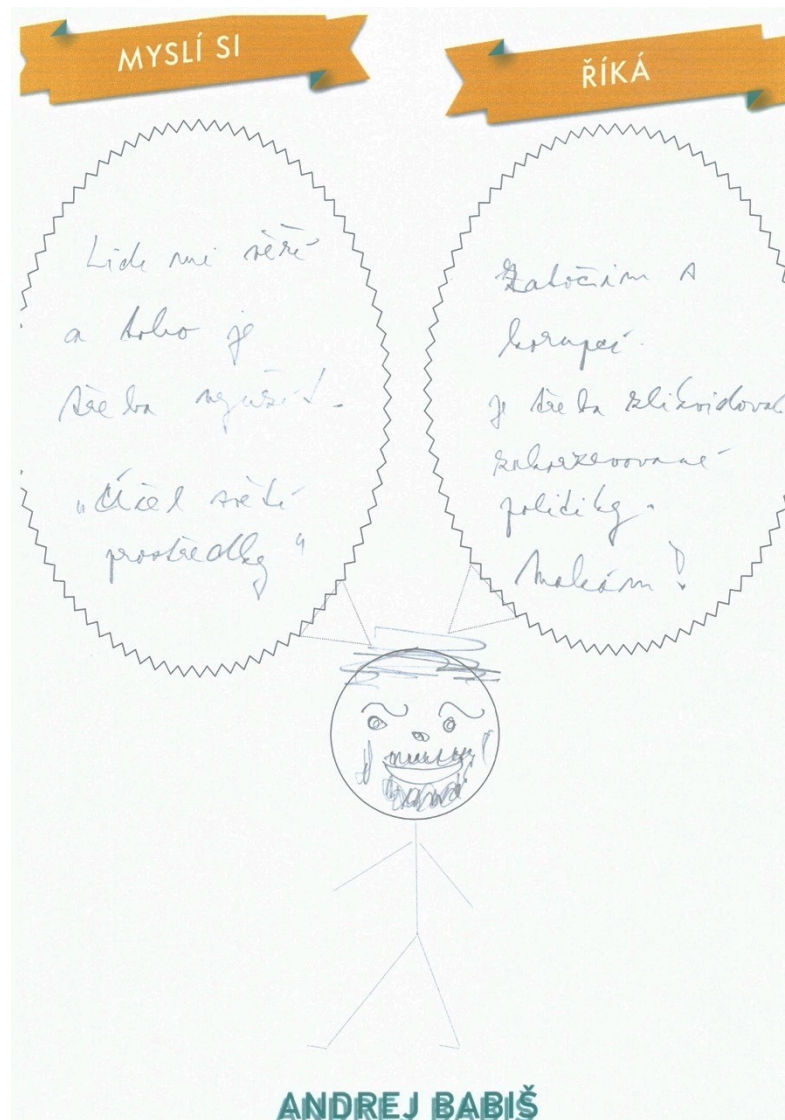 MYSLÍ SI
ŘÍKÁ
Lidé mi věří
a toho je
třeba využít.
„Účel světí
prostředky“
Zatočím s
korupcí.
je třeba zlikvidovat
zkorumpované
politiky.
Makám!
ANDREJ BABIŠ